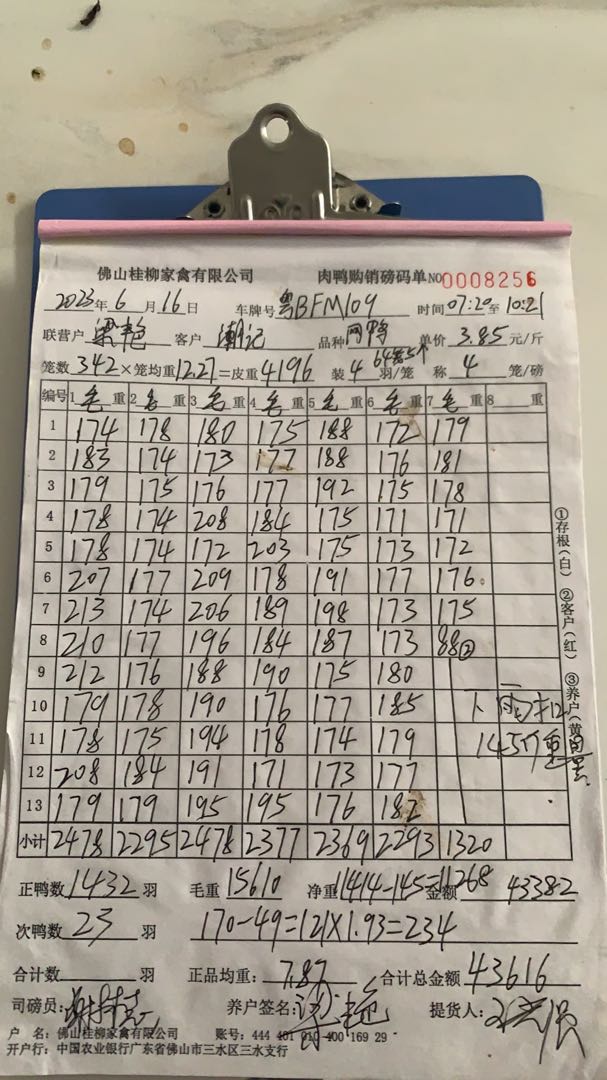 佛山桂柳家禽有限公司 肉鸭购销磅码单 NO 0008256
2023年 6 月 16 日 车牌号 粤BFM109 时间 07:20至 10:21
联营户 梁艳 客户 潮记 品种 单价 3.85 元/斤
笼数 342 × 笼均重 12.27 = 皮重 4196 装 4 羽/笼 称 4 笼/磅
编号 1 毛 重 2 毛 重 3 毛 重 4 毛 重 5 毛 重 6 毛 重 7 毛 重 8 重
1 174 178 180 175 188 172 179
2 183 174 173 177 188 176 181
3 179 175 176 177 192 175 178
4 178 174 208 184 175 171 171
5 178 174 172 203 175 173 172
6 207 177 209 178 191 177 176
7 213 174 206 189 198 173 175
8 210 177 196 184 187 173 88②
9 212 176 188 190 175 180
10 179 178 190 176 177 185 下雨扣
11 178 175 194 178 174 179 145斤重量
12 208 184 191 171 173 177
13 179 179 195 195 176 182
小计 2478 2295 2478 2377 2369 2293 1320
①存根(白) ②客户(红) ③养户(黄)
正鸭数 1432 羽 毛重 15610 净重 11414-145=11268 金额 43382
次鸭数 23 羽 170-49=121×1.93=234
合计数 羽 正品均重: 7.87 合计总金额 43616
司磅员: 养户签名: 梁艳 提货人:
户 名: 佛山桂柳家禽有限公司 账号: 444 401 010 400 169 29
开户行: 中国农业银行广东省佛山市三水区三水支行